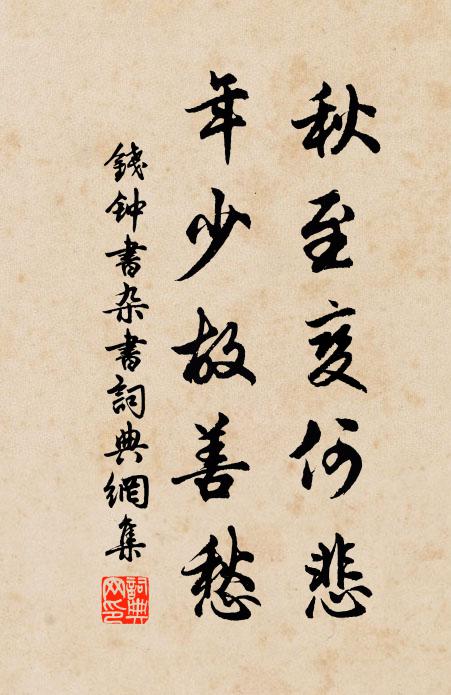 秋至变何悲
年少故善愁
錢钟書杂書詞典網集
詞典
网印